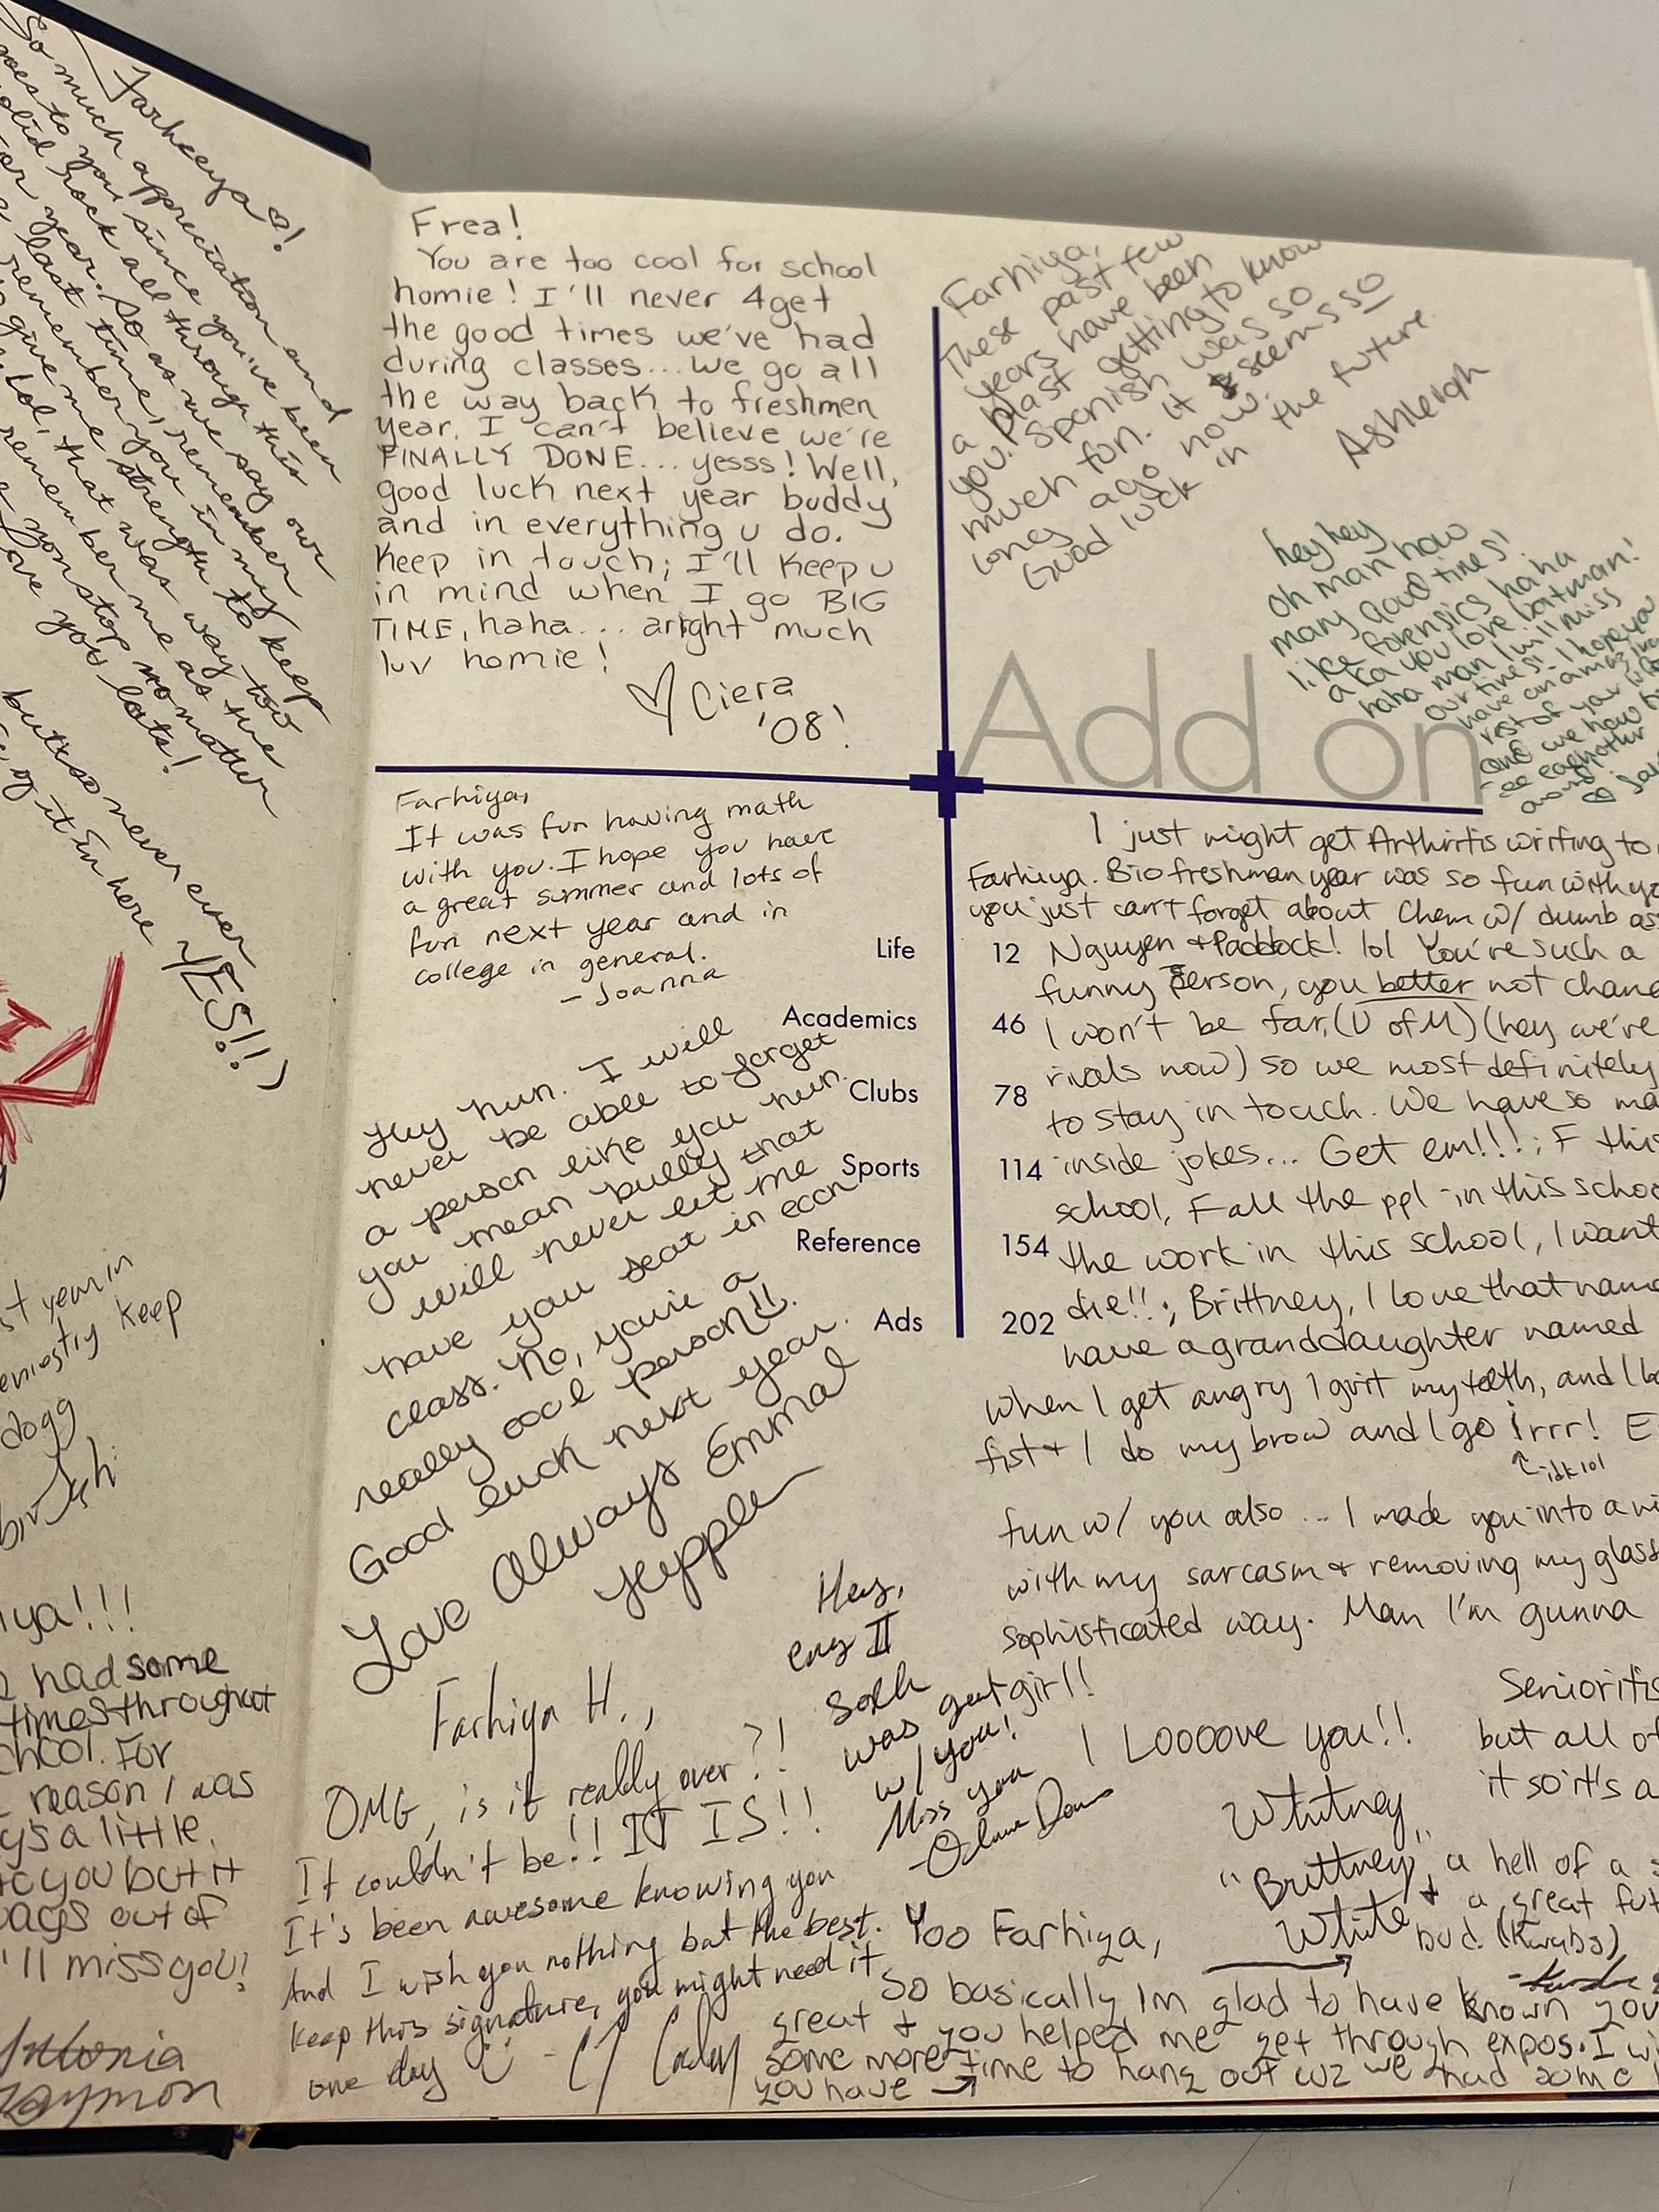 Farheeya ♡!
So much appreciation and
goes to you since you've been
solid rock all through this
year. So as we say our
last time, remember
remember you in my
give me strength to keep
lol, that was way too
remember me as the
nonstop no matter
love you lots!
but so never ever
of it in here YES!!)
st year in
keep
dogg
iya!!!
had some
times throughout
school. For
reason I was
a little
to you but it
out of
'll miss you!
Antonia
Frea!
You are too cool for school
homie! I'll never 4get
the good times we've had
during classes... we go all
the way back to freshmen
year. I can't believe we're
FINALLY DONE... yesss! Well,
good luck next year buddy
and in everything u do.
Keep in touch; I'll keep u
in mind when I go BIG
TIME, haha... aright much
luv homie!
♡ Ciera
'08!
Farhiya,
These past few
years have been
a blast getting to know
you. Spanish was so
much fun. it seems so
long ago now.
Good luck in the future.
Ashleigh
hey hey
oh man how
many good times!
like forensics haha
aka you love batman!
haha man I will miss
our times! I hope you
have an amazing
rest of your life
and we how to
see eachother
around
♡
Add on
Farhiya,
It was fun having math
with you. I hope you have
a great summer and lots of
fun next year and in
college in general.
- Joanna
Life 12
Academics 46
Clubs 78
Sports 114
Reference 154
Ads 202
Hey hun. I will
never be able to forget
a person like you hun.
you mean bully that
will never let me
have you seat in econ
class. No, you're a
really cool person!!
Good luck next year.
Love Always Emma
Hepple
I just might get Arthiritis writing to
Farhiya. Bio freshman year was so fun with yo
you just can't forget about Chem w/ dumb ass
Nguyen + Paddock! lol You're such a
funny person, you better not chang
I won't be far, (U of M) (hey we're
rivals now) so we most definitely
to stay in touch. We have so ma
inside jokes... Get em!!!; F this
school, F all the ppl in this schoo
the work in this school, I want
die!!; Brittney, I love that name
have a granddaughter named
When I get angry I grit my teeth, and I b
fist + I do my brow and I go irrr! E
idk lol
fun w/ you also... I made you into a
with my sarcasm + removing my glass
sophisticated way. Man I'm gunna
Senioritis
but all of
it so it's a
I LOOOOve you!!
Whitney
"Brittney"
White
Hey,
eng II
was great girl!
w/ you!
Miss you
Farhiya H.,
OMG, is it really over?!
It couldn't be!! IT IS!!
It's been awesome knowing you
And I wish you nothing but the best.
Keep this signature, you might need it
one day
a hell of a
+ a great fut
bud.
Yoo Farhiya,
So basically Im glad to have known you
great + you helped me get through expos. I wi
some more time to hang out cuz we had some
you have →